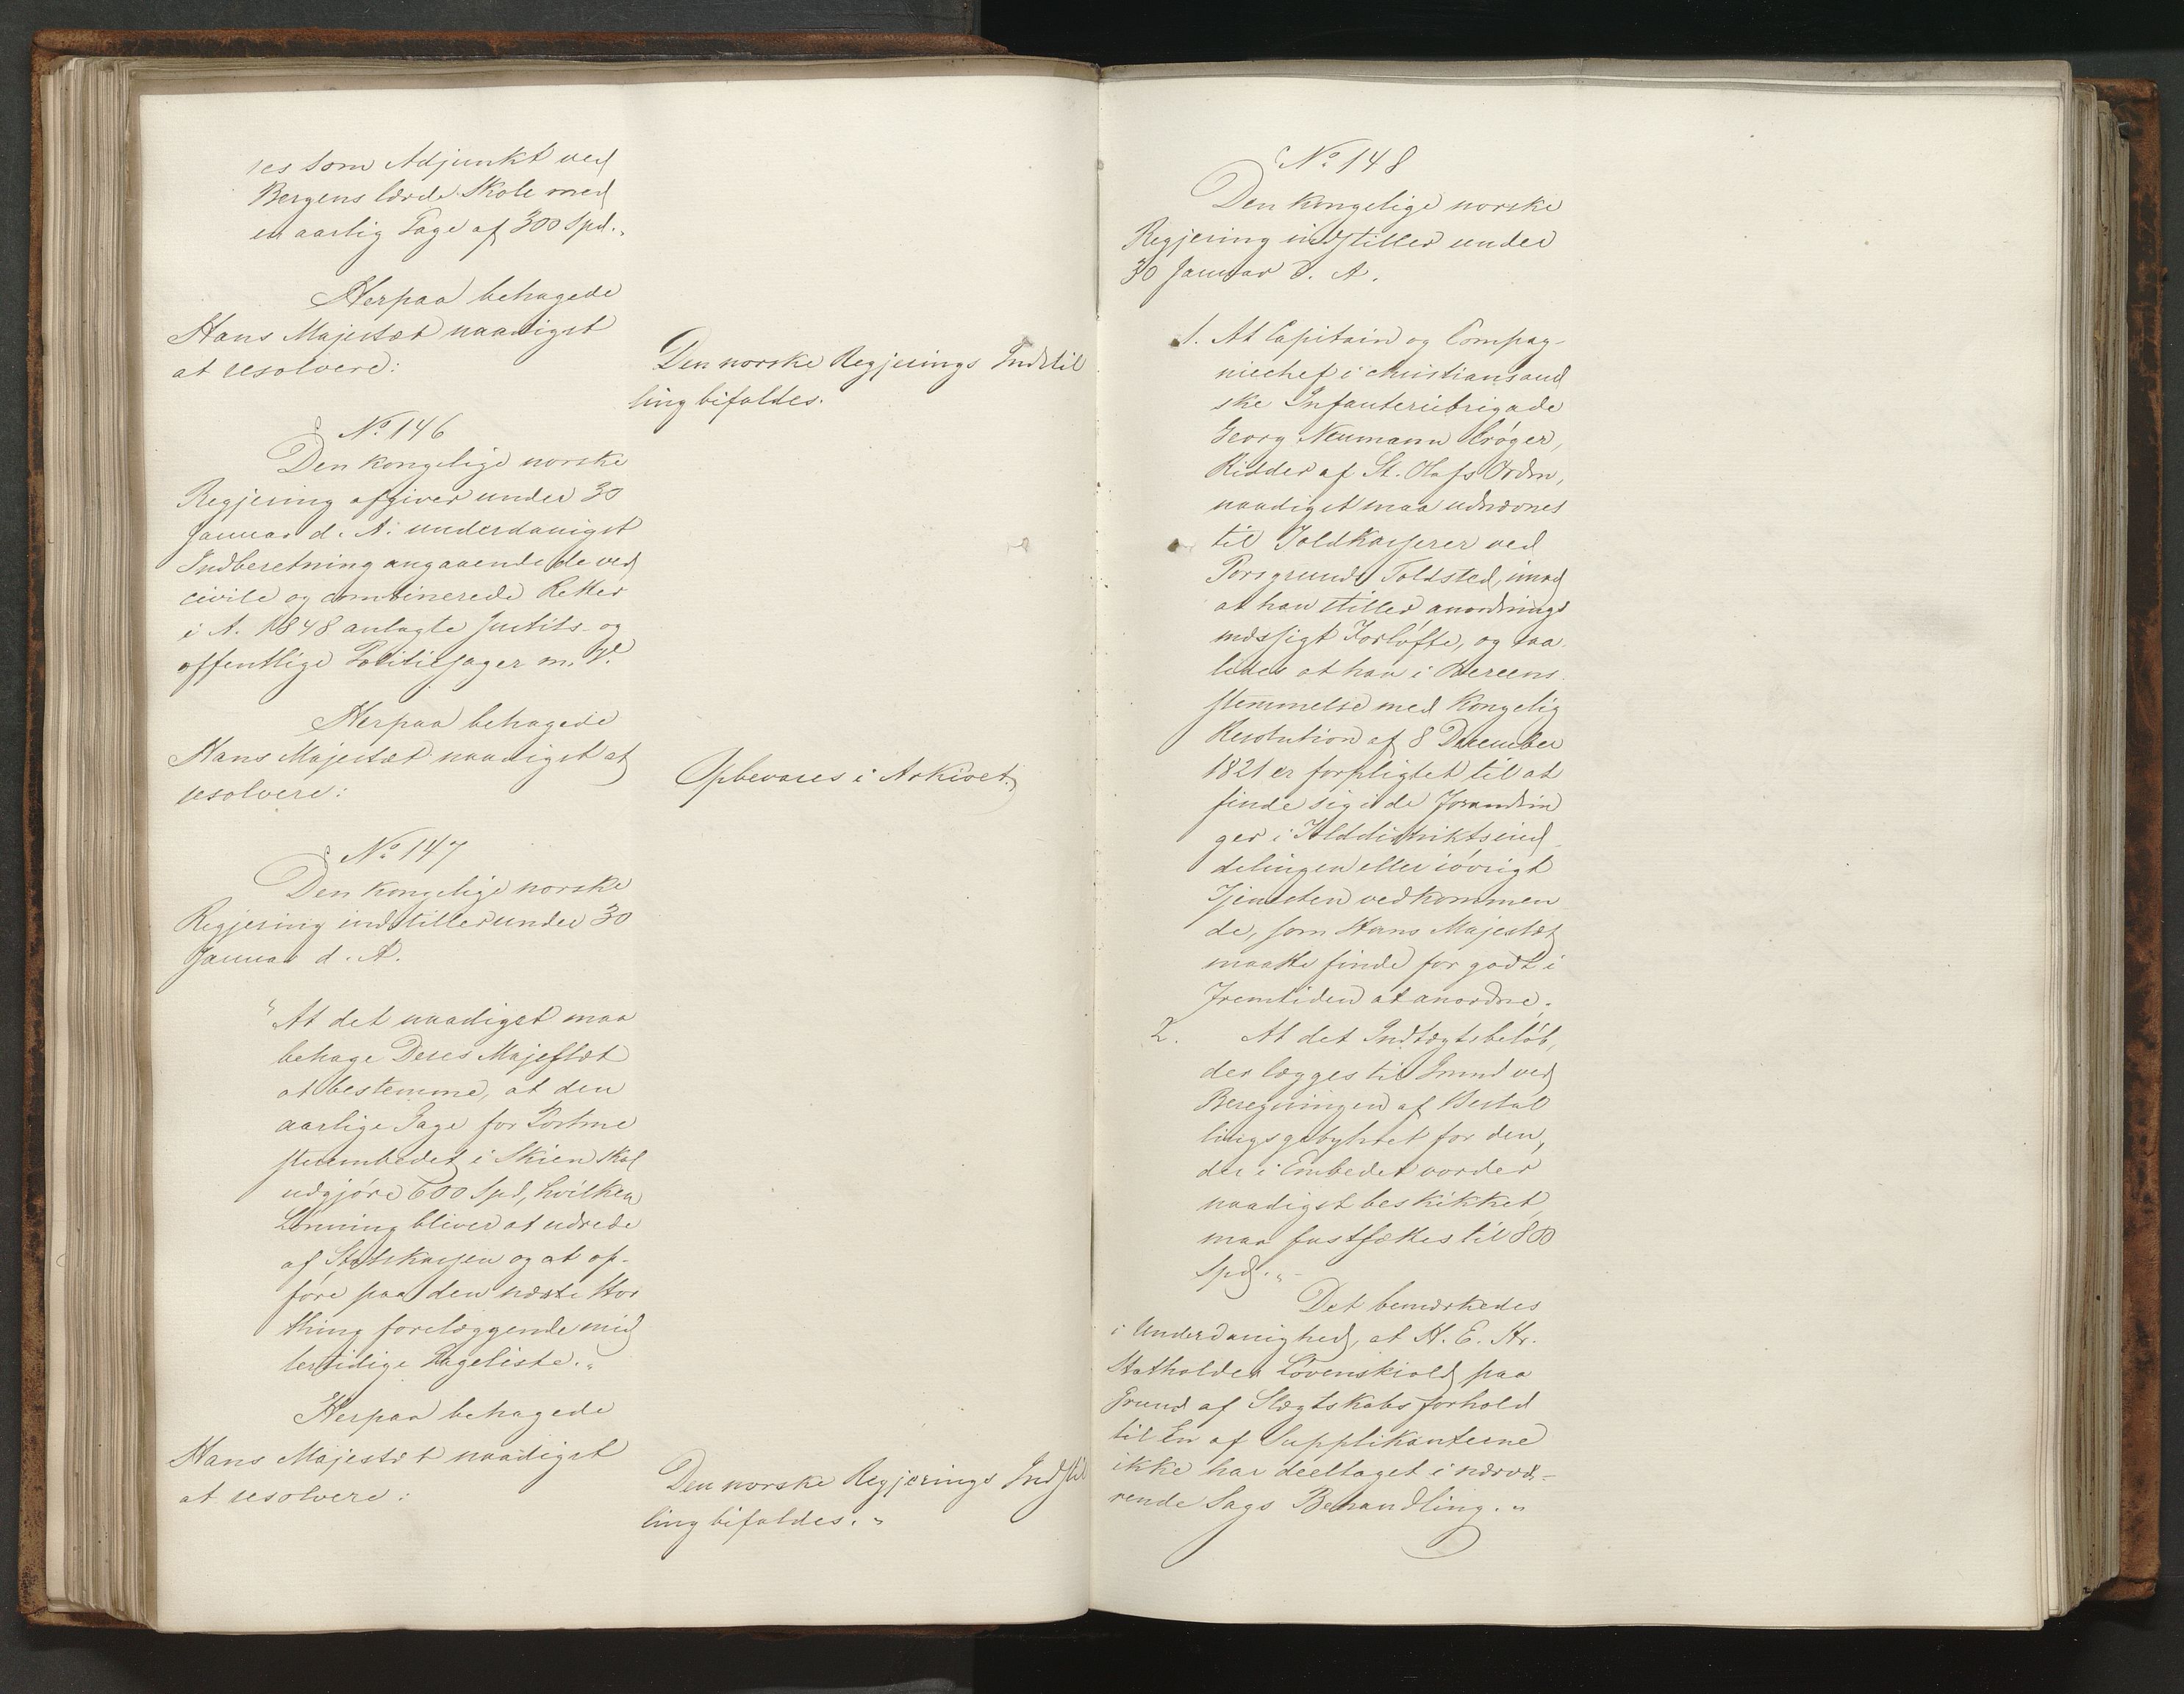 res som Adjunkt ved
Bergens lærde Skole med
en aarlig Gage af 300 Spd.„
Herpaa behagede
Hans Majestæt naadigst
at resolvere:
Den norske Regjerings Indstil
ling bifaldes.
No 146
Den kongelige norske
Regjering afgiver under 30
Januar d. A. underdanigst
Indberetning angaaende de ved
civile og combinerede Retter
i A. 1848 anlagte Justits- og
offentlige Politiesager m. V.
Herpaa behagede
Hans Majestæt naadigst at
resolvere:
Opbevares i Arkivet.
No 147
Den kongelige norske
Regjering indstiller under 30
Januar d. A.
"At det naadigst maa
behage Deres Majestæt
at bestemme, at den
aarlige Gage for Postme
sterembedet i Skien skal
udgjøre 600 Spd, hvilken
Lønning bliver at udrede
af Statskassen og at op-
føre paa den næste Stor
thing forelæggende mid
lertidige Gageliste.„
Herpaa behagede
Hans Majestæt naadigst
at resolvere:
Den norske Regjerings Indstil
ling bifaldes.„
No 148
Den kongelige norske
Regjering indstiller under
30 Januar d. A.
1. At Capitain og Compag-
niechef i Christiansand
ske Infanteriebrigade
Georg Neumann Crøger,
Ridder af St. Olafs Orden,
naadigst maa udnævnes
til Toldkasserer ved
Porsgrunds Toldsted, imod
at han stiller anordnings
mæssigt Forløfte, og saa
ledes at han i Overeens
stemmelse med Kongelig
Resolution af 8 December
1821 er forpligtet til at
finde sig i de Forandrin
ger i Tolddistriktsind
delingen eller iøvrigt
Tjenesten vedkommen
de, som Hans Majestæt
maatte finde for godt i
Fremtiden at anordne.
2. At det Indtægtsbeløb,
der lægges til Grund ved
Beregningen af Bestal
lingsgebyhret for den,
der i Embedet vorder
naadigst beskikket,
maa fastsættes til 800
Spd.„
Det bemærkedes
i Underdanighed, at H. E. Hr.
Statholder Løvenskiold paa
Grund af Slægtskabsforhold
til En af Supplikanterne
ikke har deeltaget i nærvæ-
rende Sags Behandling.„